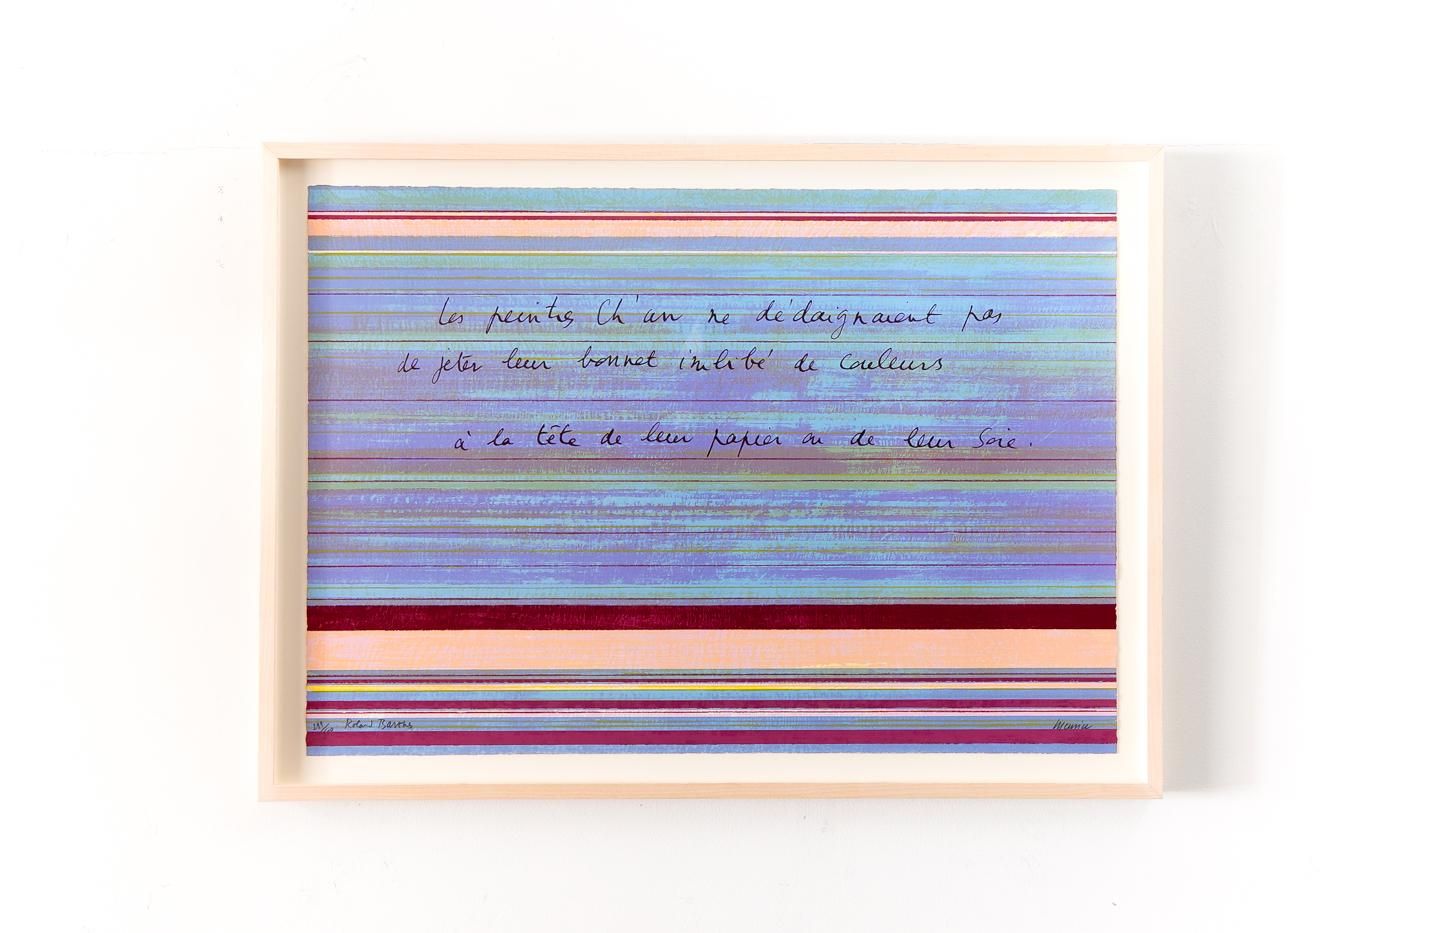 Les peintres Ch'an ne dédaignaient pas
de jeter leur bonnet imbibé de couleurs
à la tête de leur papier ou de leur soie.
Roland Barthes
Meurice